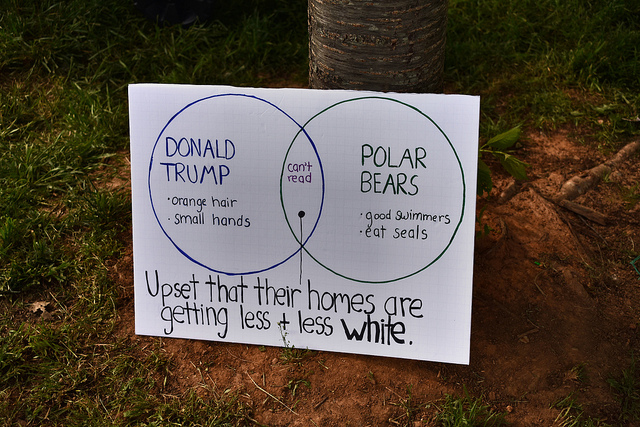 DONALD
TRUMP
· orange hair
· small hands
can't
read
POLAR
BEARS
· good swimmers
· eat seals
Upset that their homes are
getting less + less white.